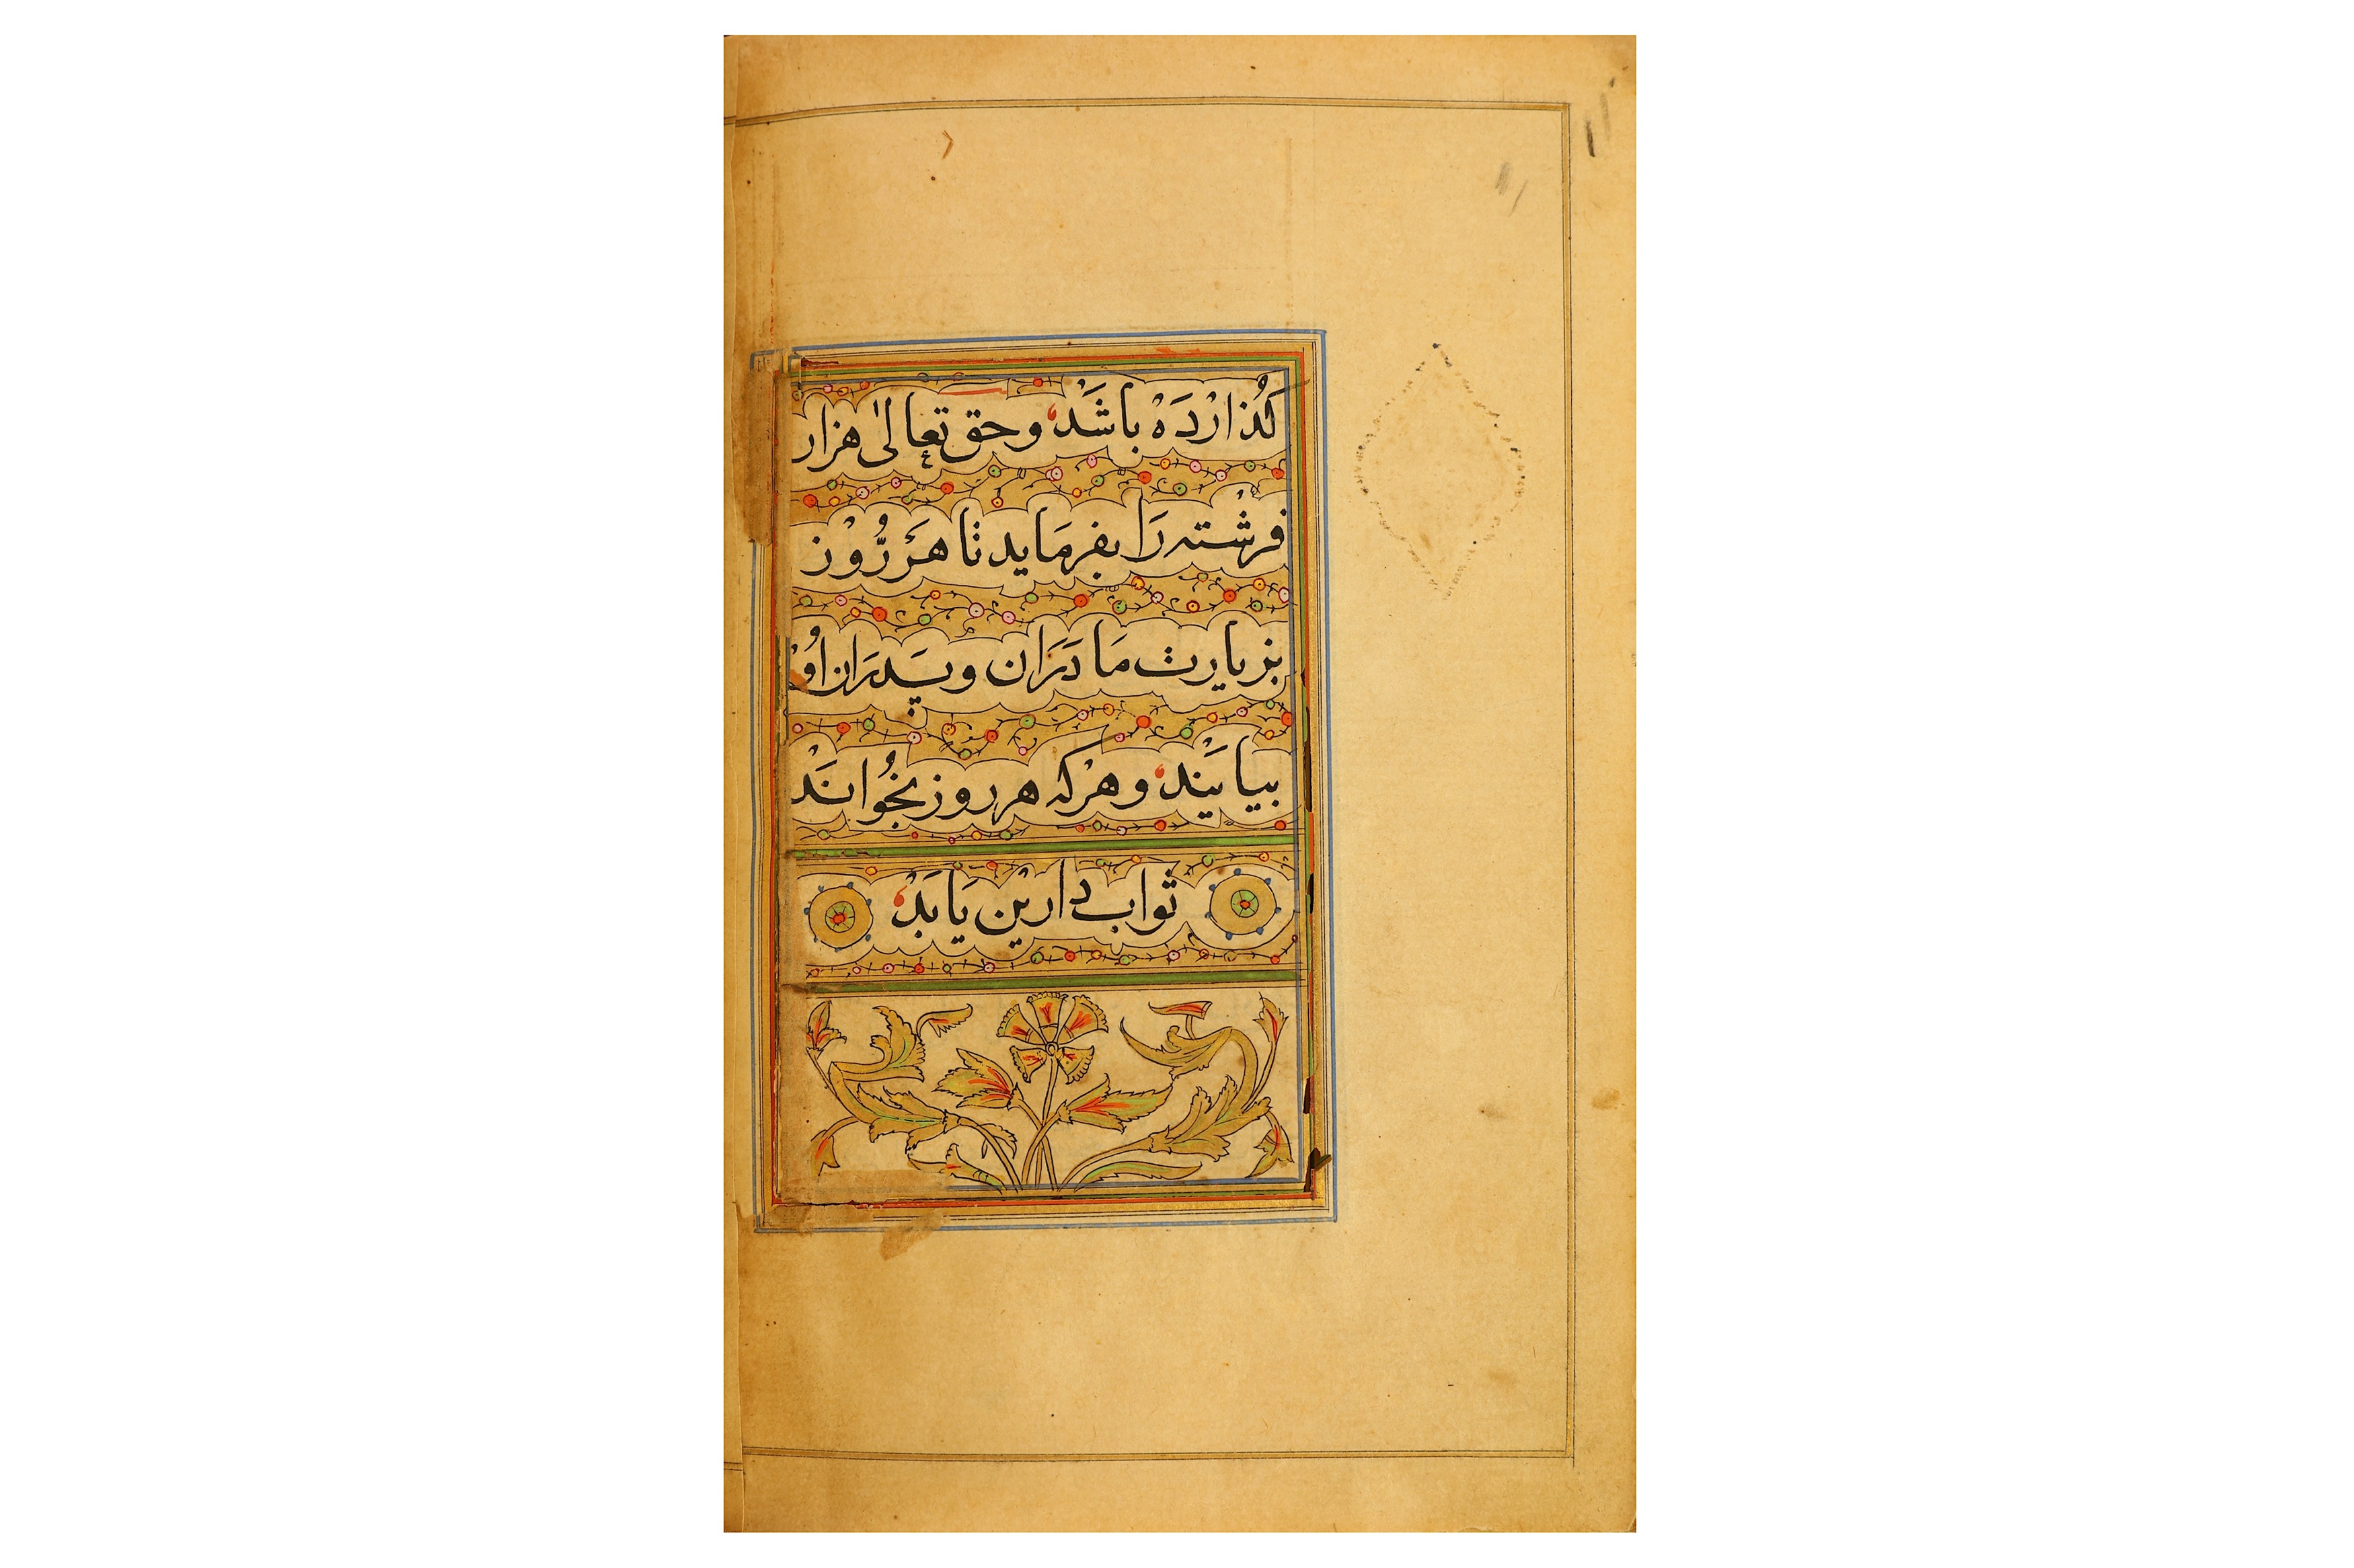 كُذارْدَهْ باشَدْ وحق تعالىٰ هزار
فرشْته رَا بفرمَايد تا هَررُّوْز
بزيارت مَادَرَان وپِدَرَان اوْ
بيايَنْد وهرْكه هر روز بخُوانَدْ
ثواب دارَيْن يَابَدْ